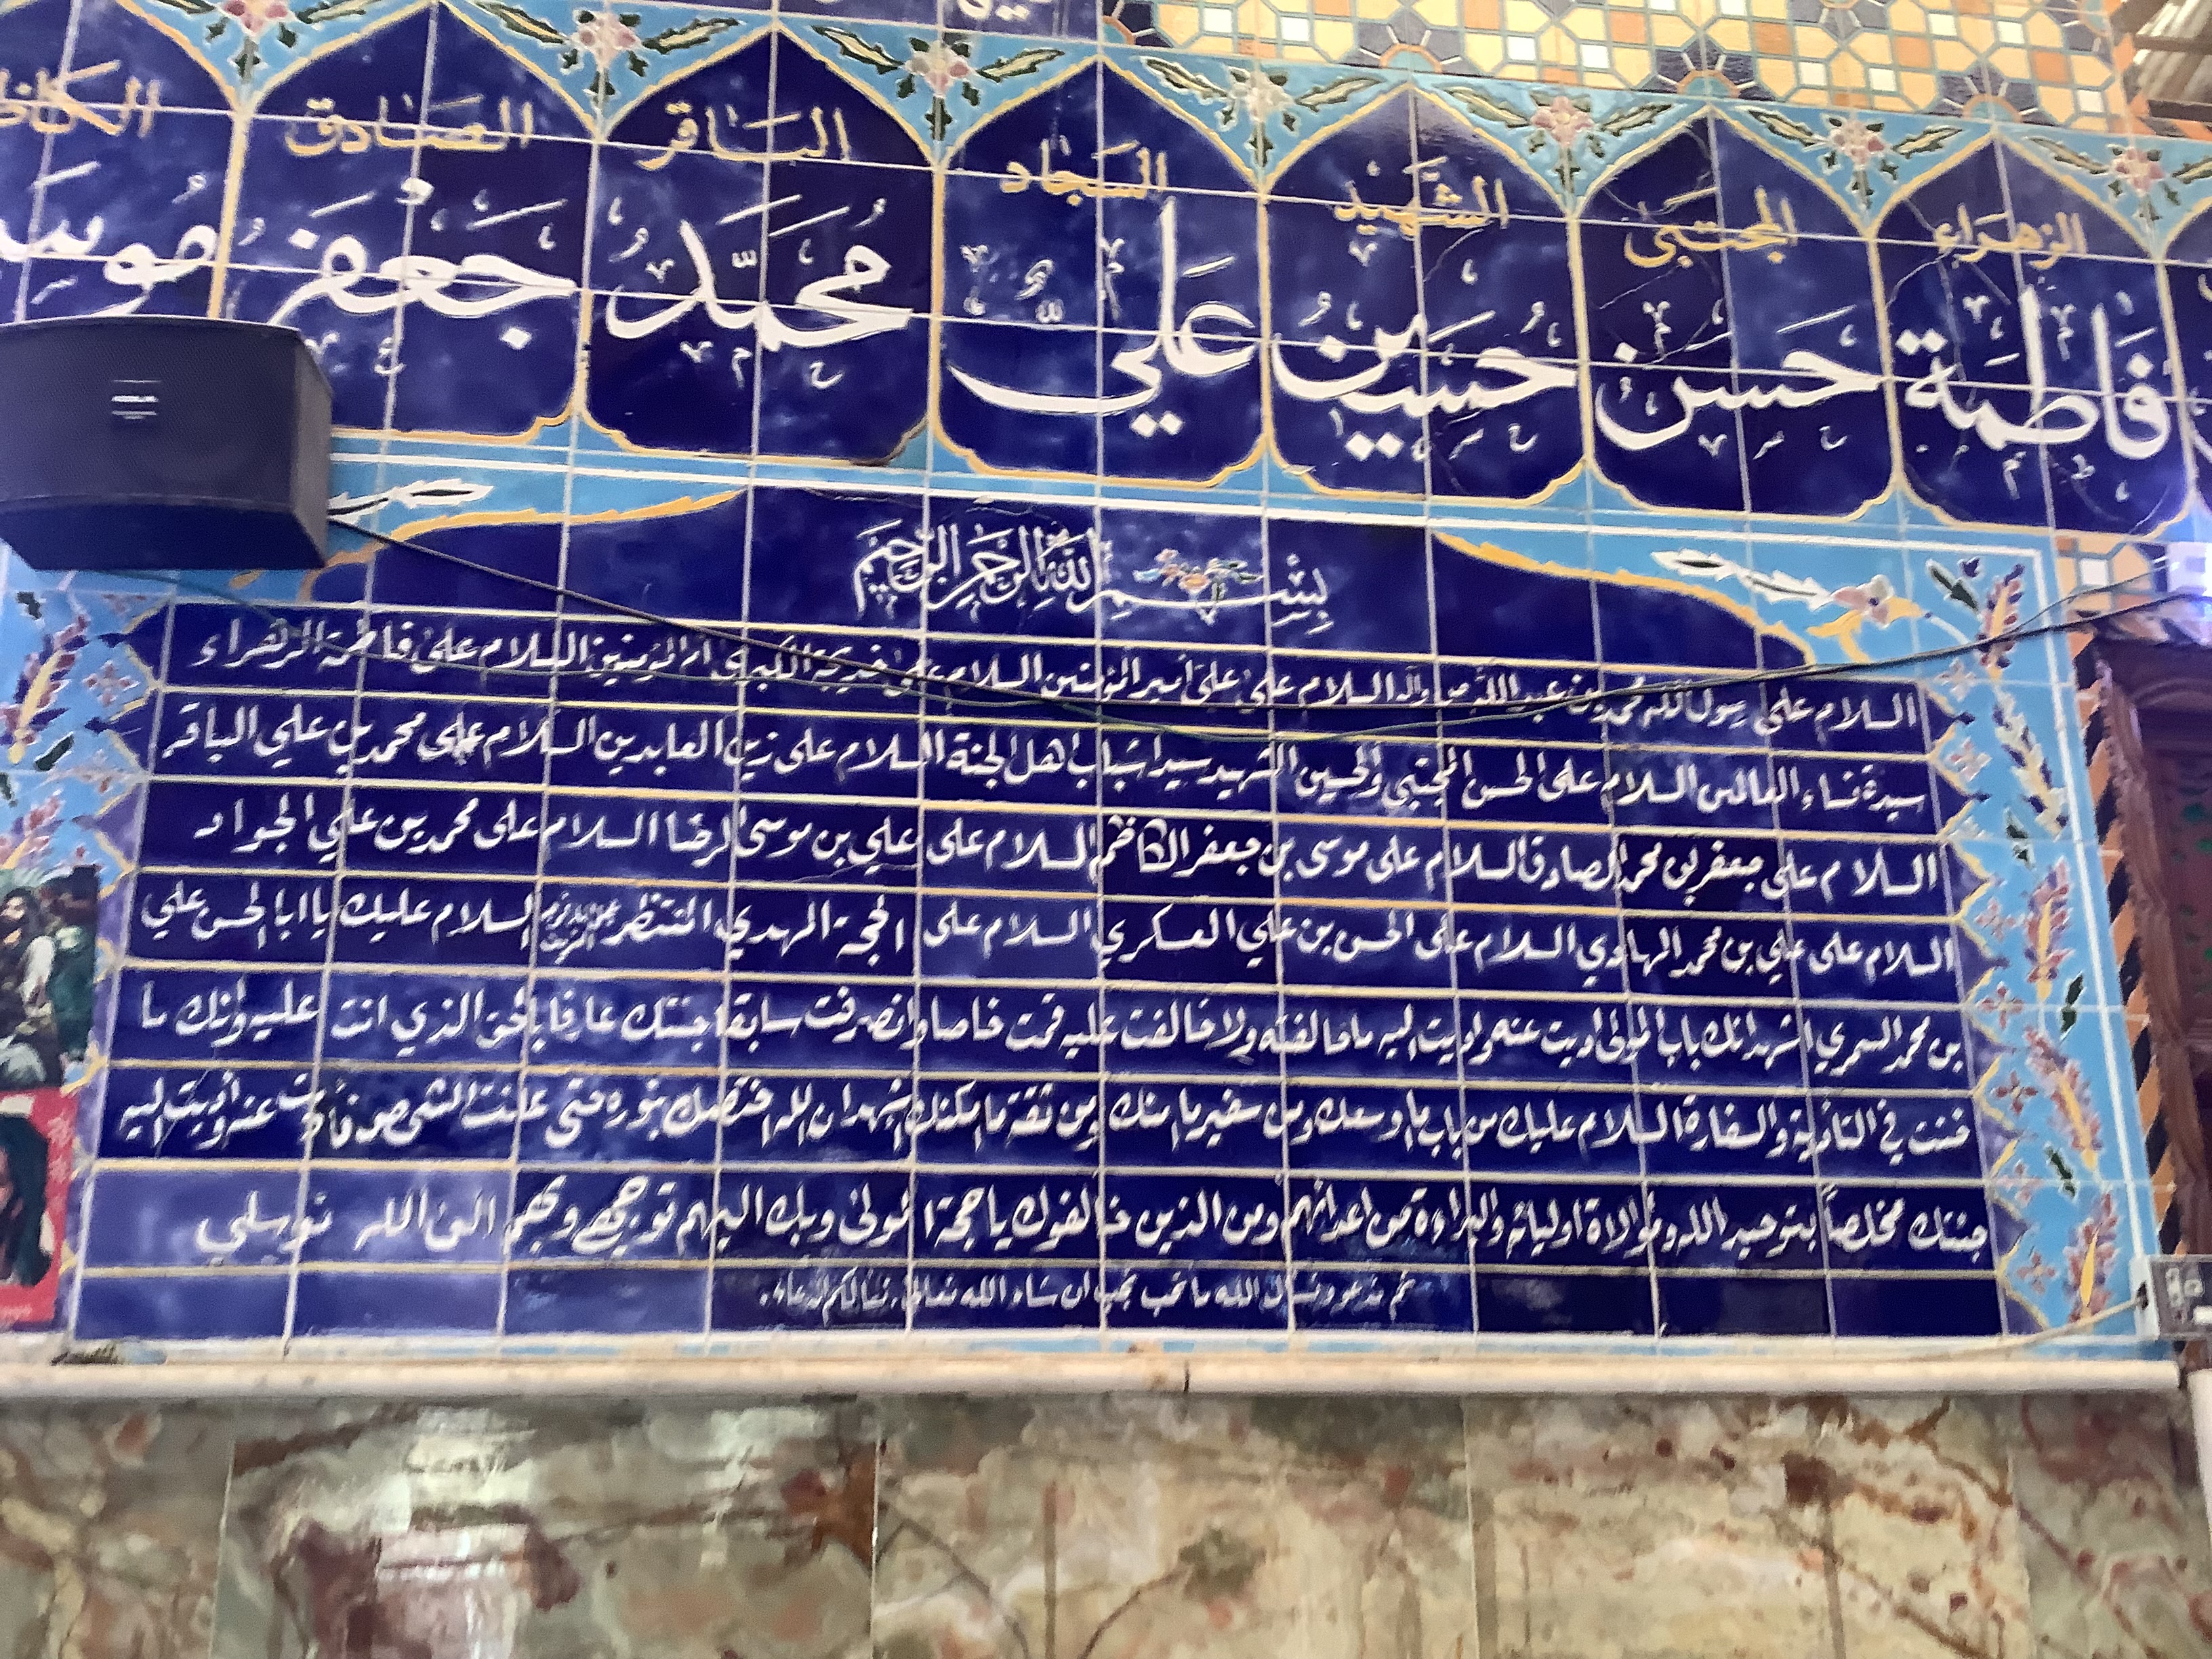 الزهراء
فاطمة
المجتبى
حسن
الشهيد
حسين
السجاد
علي
الباقر
محمد
الصادق
جعفر
بسم الله الرحمن الرحيم
السلام على رسول الله محمد بن عبد الله السلام على علي أمير المؤمنين السلام على خديجة الكبرى ام المؤمنين السلام على فاطمة الزهراء
سيدة نساء العالمين السلام على الحسن المجتبى والحسين الشهيد سيدا شباب اهل الجنة السلام على زين العابدين السلام على محمد بن علي الباقر
السلام على جعفر بن محمد الصادق السلام على موسى بن جعفر الكاظم السلام على علي بن موسى الرضا السلام على محمد بن علي الجواد
السلام على علي بن محمد الهادي السلام على الحسن بن علي العسكري السلام على الحجة المهدي المنتظر السلام عليك يا ابا الحسن علي
بن محمد السمري اشهد انك باب المولى اديت عنه واديت اليه ما خالفته ولا خالفت عليه قمت خاصا وانصرفت سابقا جئتك عارفا بالحق الذي انت عليه وانك ما
خنت في التأدية والسفارة السلام عليك من باب ما اوسعك ومن سفير ما امنك ومن ثقة ما امكنك اشهد ان الله اختصك بنوره حتى عاينت الشخص فأديت عنه واديت اليه
جئتك مخلصاً بتوحيد الله وموالاة اوليائه والبراءة من اعدائهم ومن الذين خالفوك يا حجة المولى وبك اليهم توجهي وبهم الى الله توسلي
ثم تدعو وتسأل الله ما تحب تجب ان شاء الله تعالى. نسألكم الدعاء.